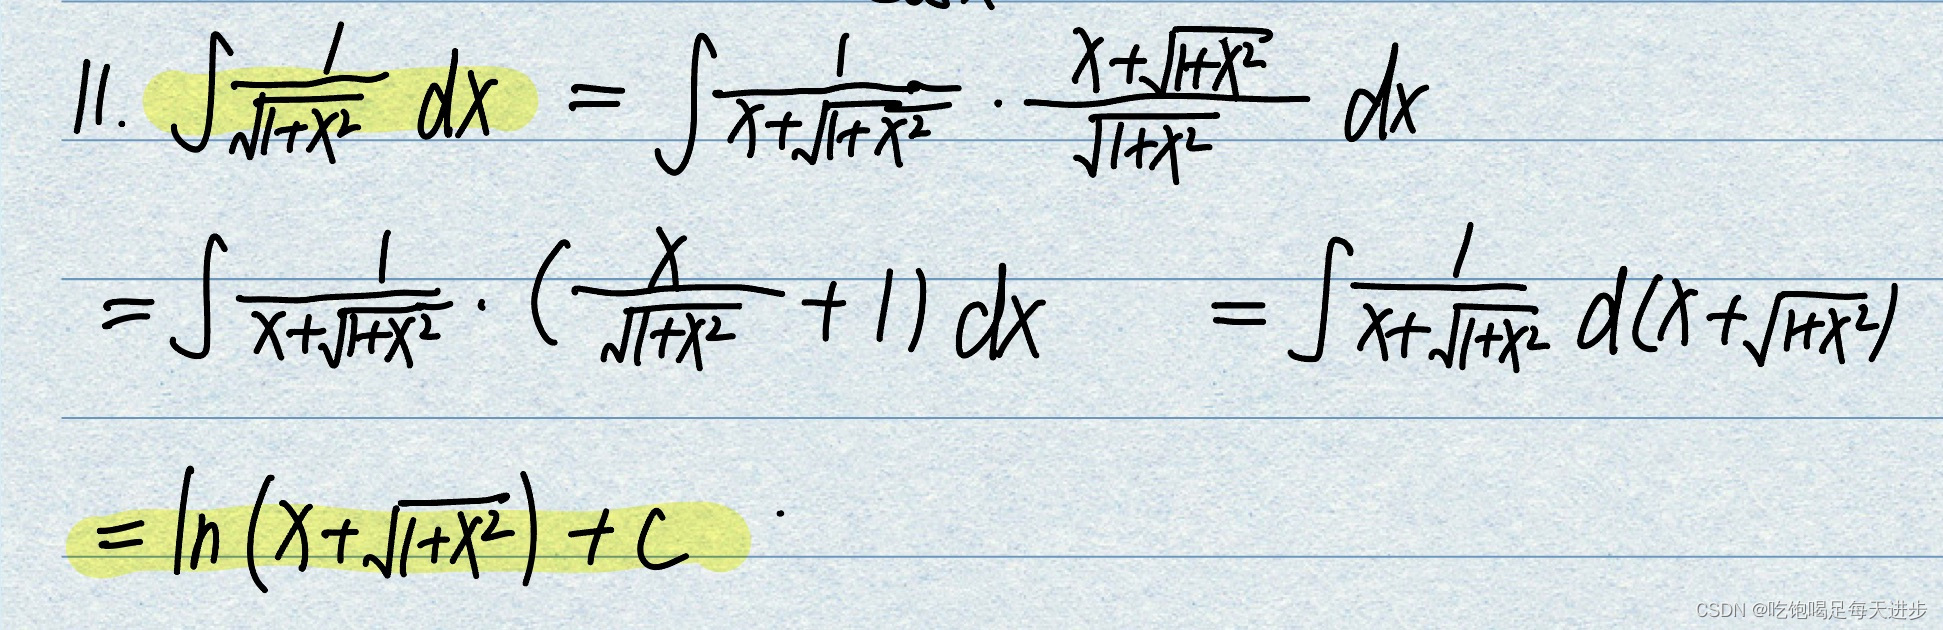 11. ∫ 1/√(1+x²) dx = ∫ 1/(x+√(1+x²)) · (x+√(1+x²))/√(1+x²) dx
= ∫ 1/(x+√(1+x²)) · (x/√(1+x²) + 1) dx = ∫ 1/(x+√(1+x²)) d(x+√(1+x²))
= ln(x+√(1+x²)) + C
CSDN @吃饱喝足每天进步